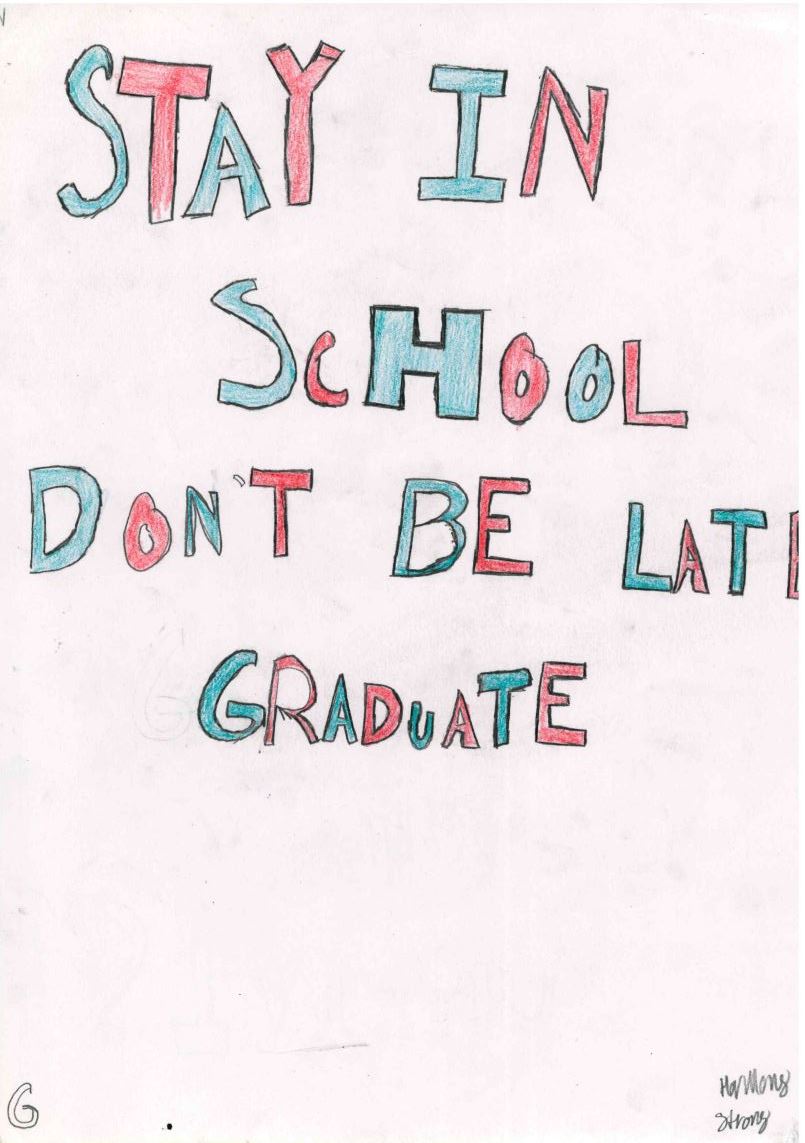 STAY IN
ScHOOL
DON'T BE LATE
GRADUATE
G
Harmony
Strong